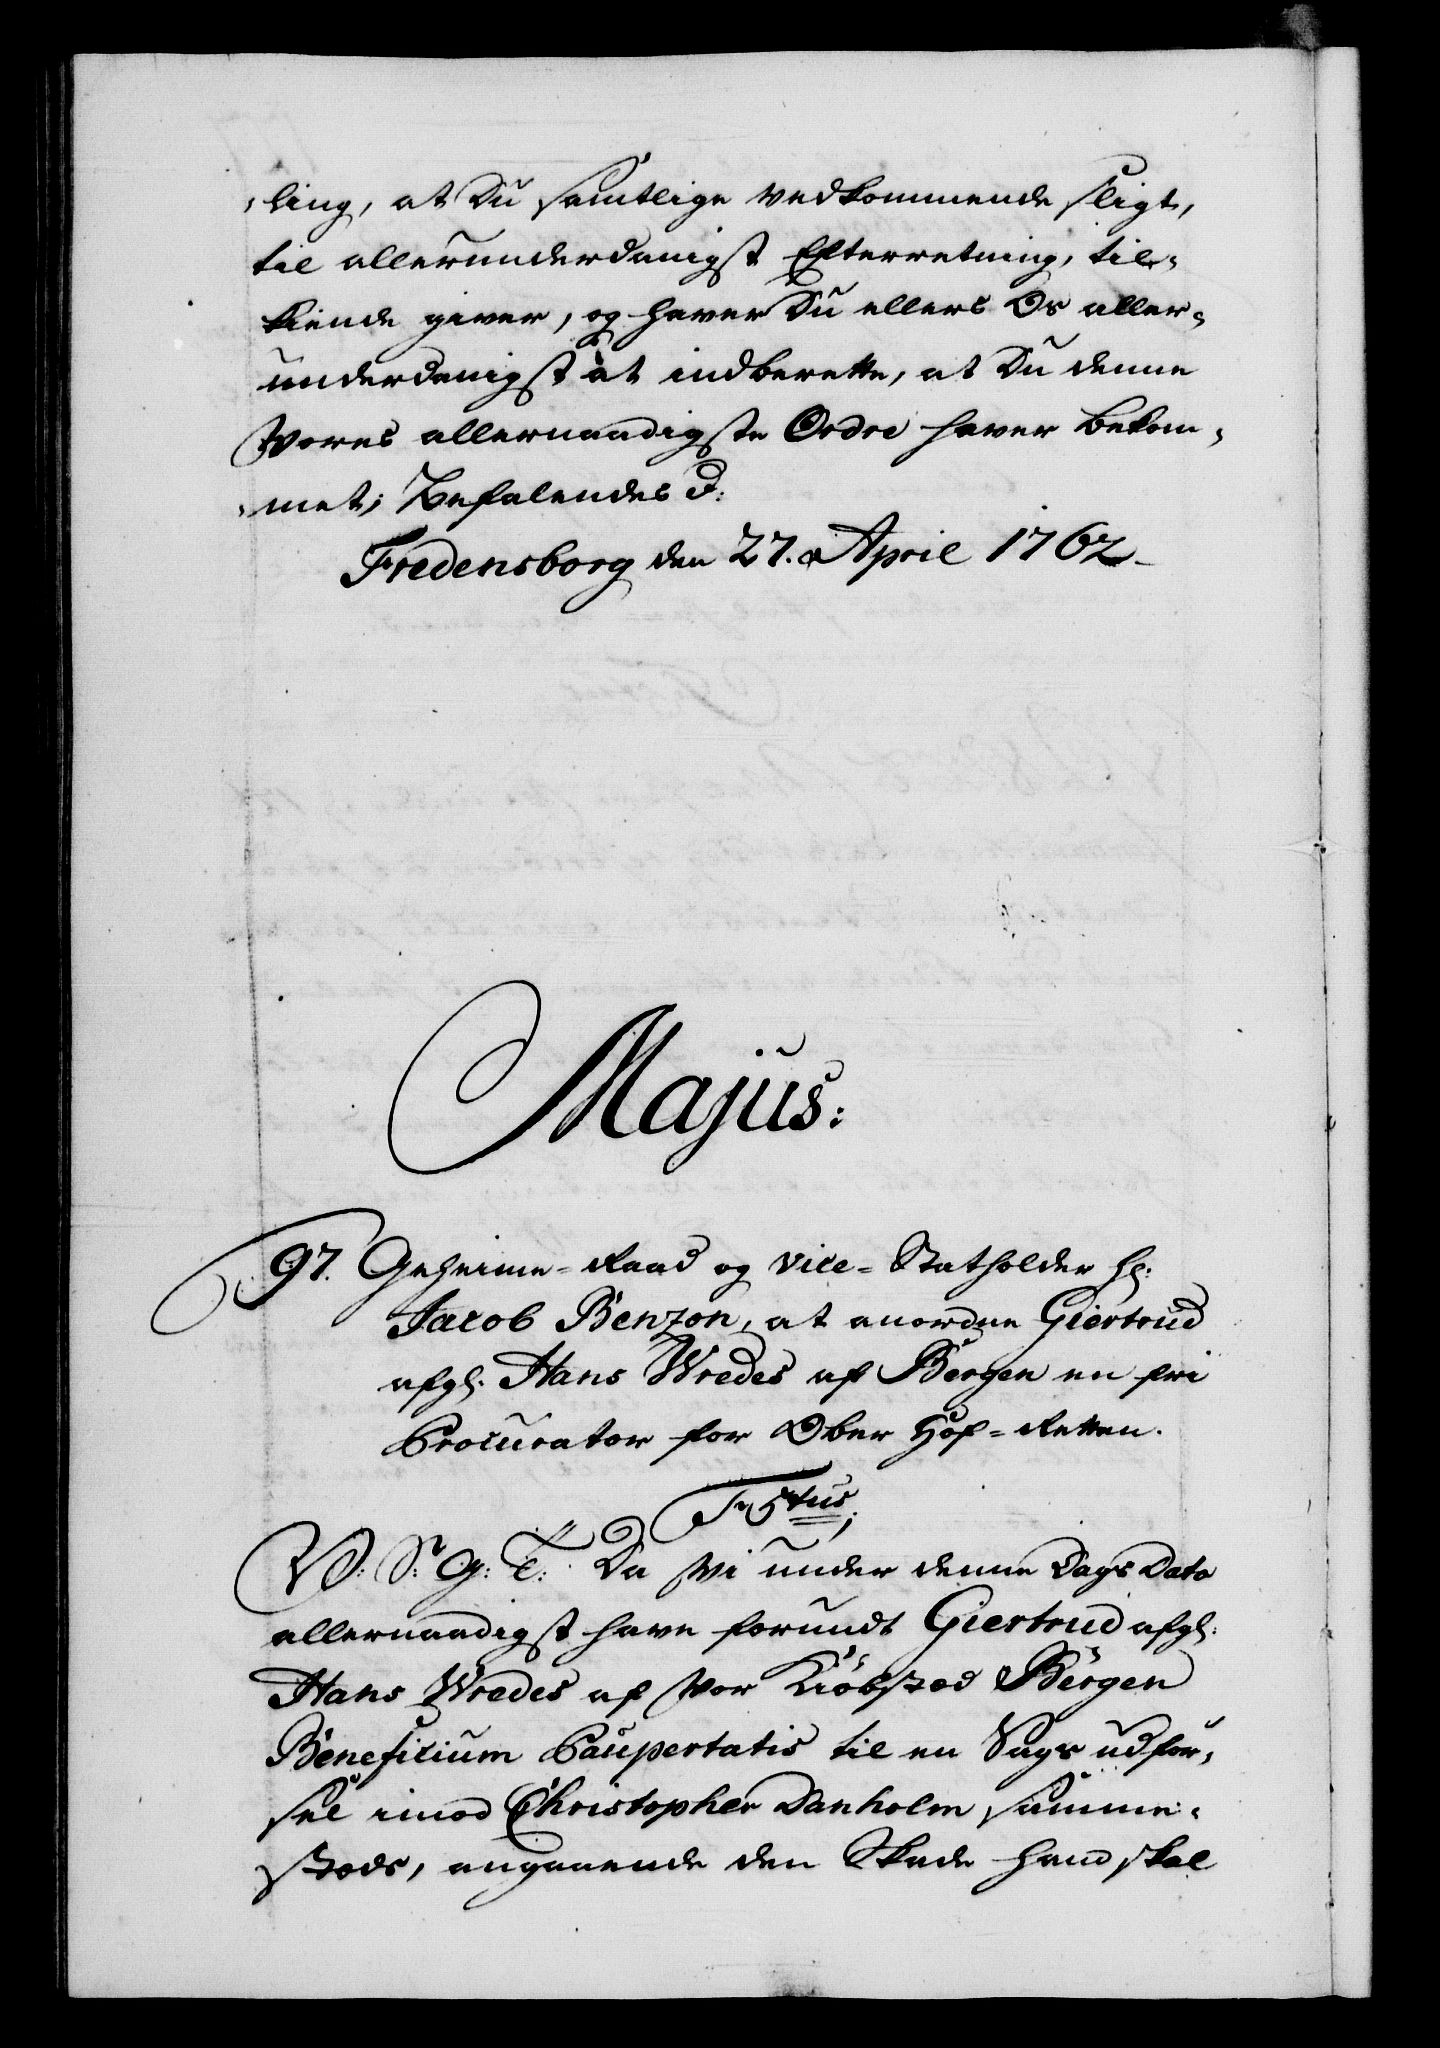 ling, at Du samtlige vedkommende sligt,
til allerunderdanigst Efterretning, til-
kiende giver, og haver Du ellers Os aller-
underdanigst at indberette, at Du denne
Vores allernaadigste Ordre haver bekom-
met; Befalendes d:
Fredensborg den 27. April 1762
Majus:
97. Geheime-Raad og Vice-Statholder Hr:
Jacob Benzon, at anordne Giertrud
afgl. Hans Wredes af Bergen en fri
Procurator for Ober Hof-Retten.
F 5tus;
V: S: G: T: Da Vi under denne Dags Dato
allernaadigst have forundt Giertrud afgl:
Hans Wredes af Vor Kiöbsted Bergen
Beneficium Paupertatis til en Sags udför-
sel imod Christopher Danholm samme-
steds, angaaende den Skade hand skal